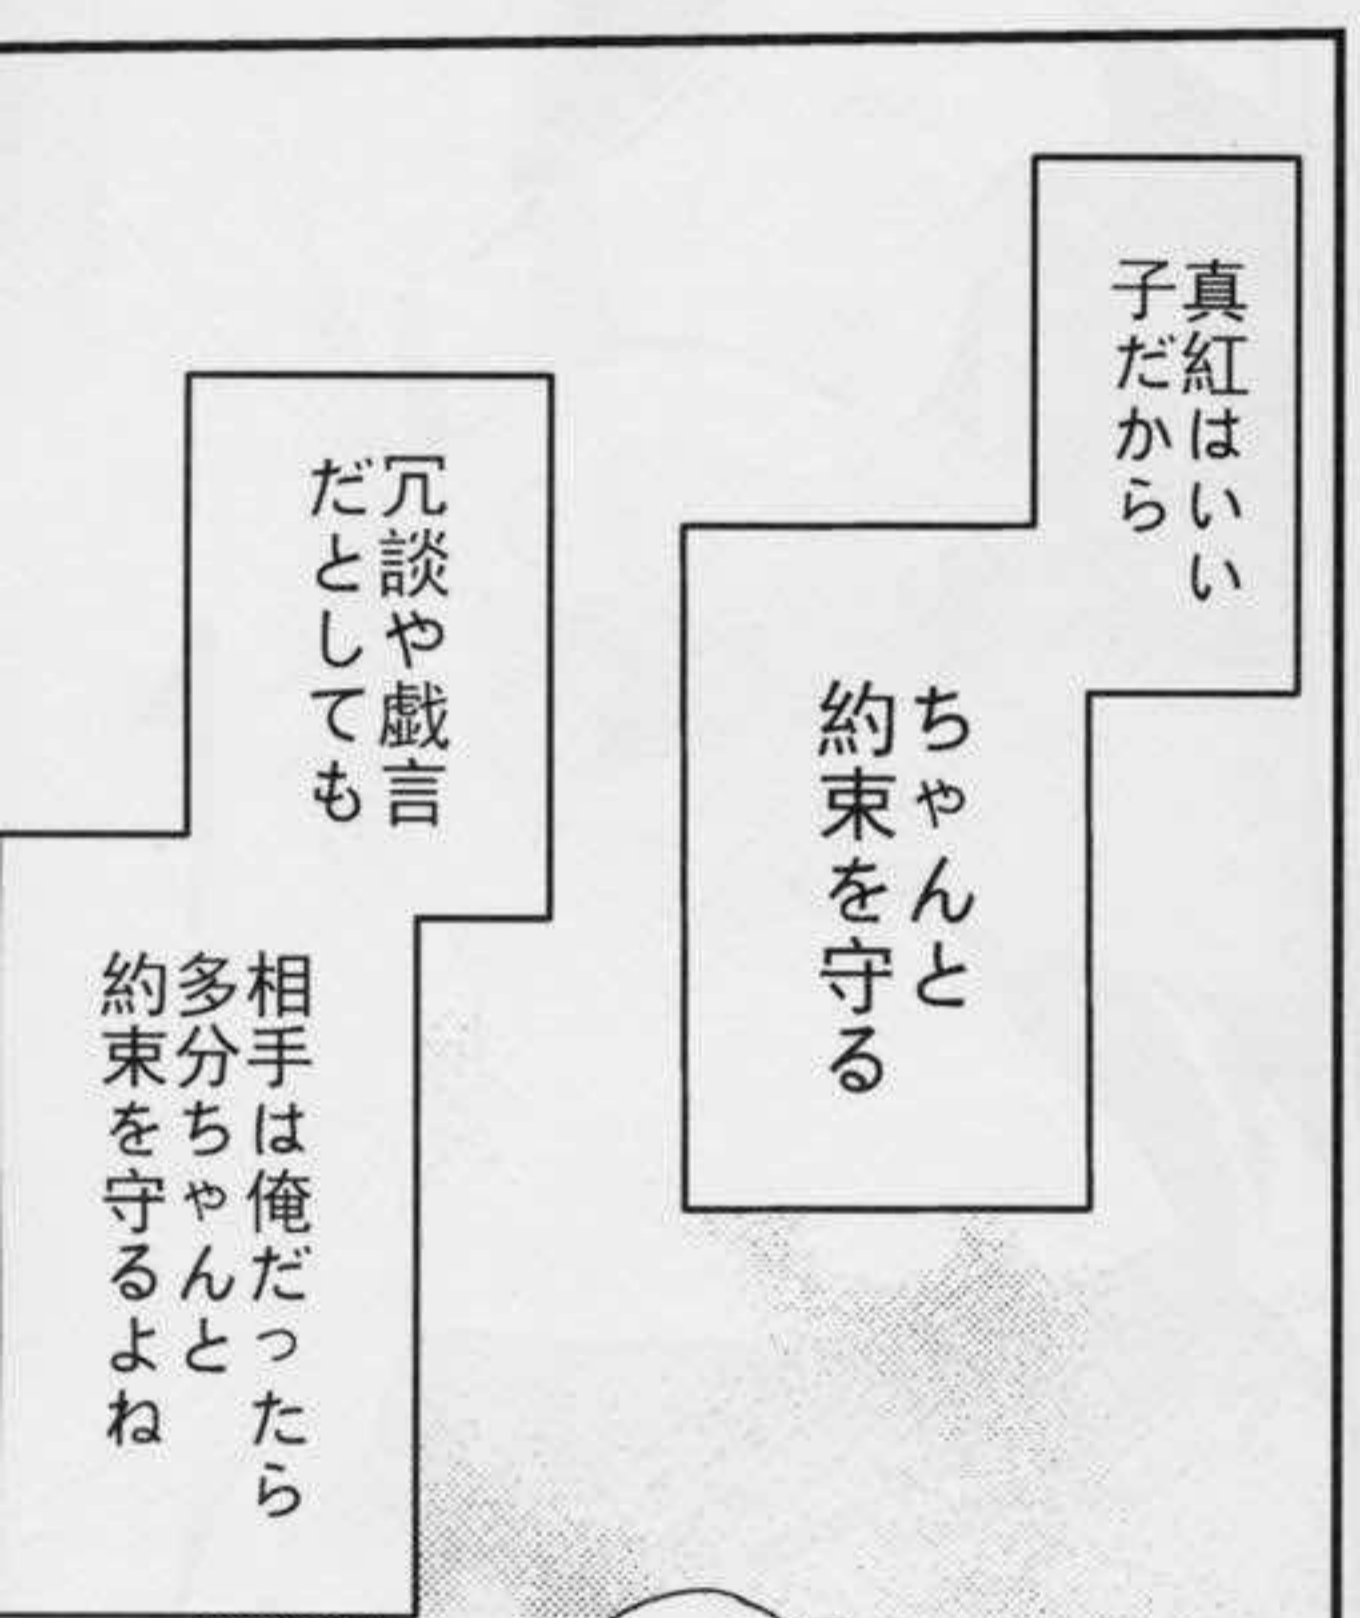 真紅はいい
子だから
ちゃんと
約束を守る
冗談や戯言
だとしても
相手は俺だったら
多分ちゃんと
約束を守るよね